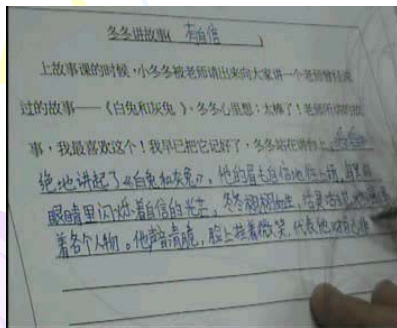 冬冬讲故事(有自信)
上故事课的时候，小冬冬被老师请出来向大家讲一个老师曾经说
过的故事——《白兔和灰兔》。冬冬心里想：太棒了！老师所讲的故
事，我最喜欢这个！我早已把它记好了，冬冬站在讲台上，
绝地讲起了《白兔和灰兔》，他的眉毛自信地往上扬，
眼睛里闪烁着自信的光芒，冬冬栩栩如生，活灵活现地
着各个人物。他声音清脆，脸上挂着微笑，代表他对自己